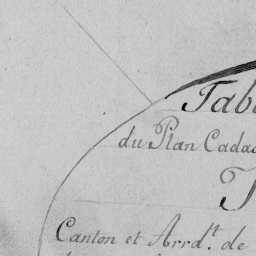 Tab
du Plan Cada
Canton et Arrd.t de